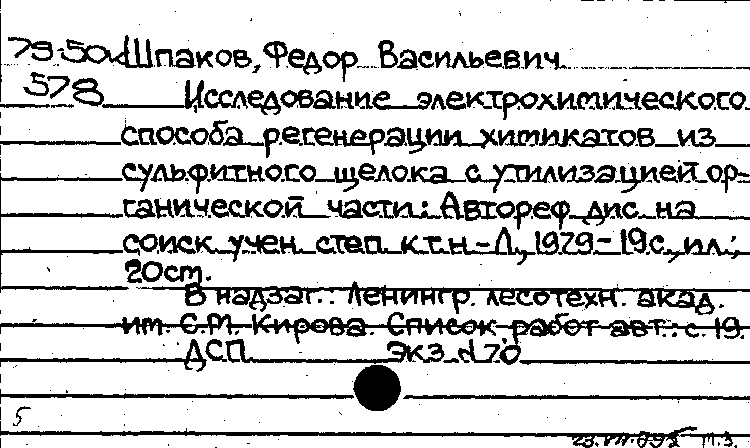 79-50д Шпаков, Федор Васильевич
578 Исследование электрохимического
способа регенерации химикатов из
сульфитного щелока с утилизацией ор-
ганической части: Автореф дис. на
соиск. учен. степ. к.т.н - Л., 1979 - 19с., ил.;
20см.
В надзаг.: Ленингр. лесотехн. акад.
им. С.М. Кирова. Список работ авт.: с. 19.
ДСП. Экз. d 70
5
м.з.